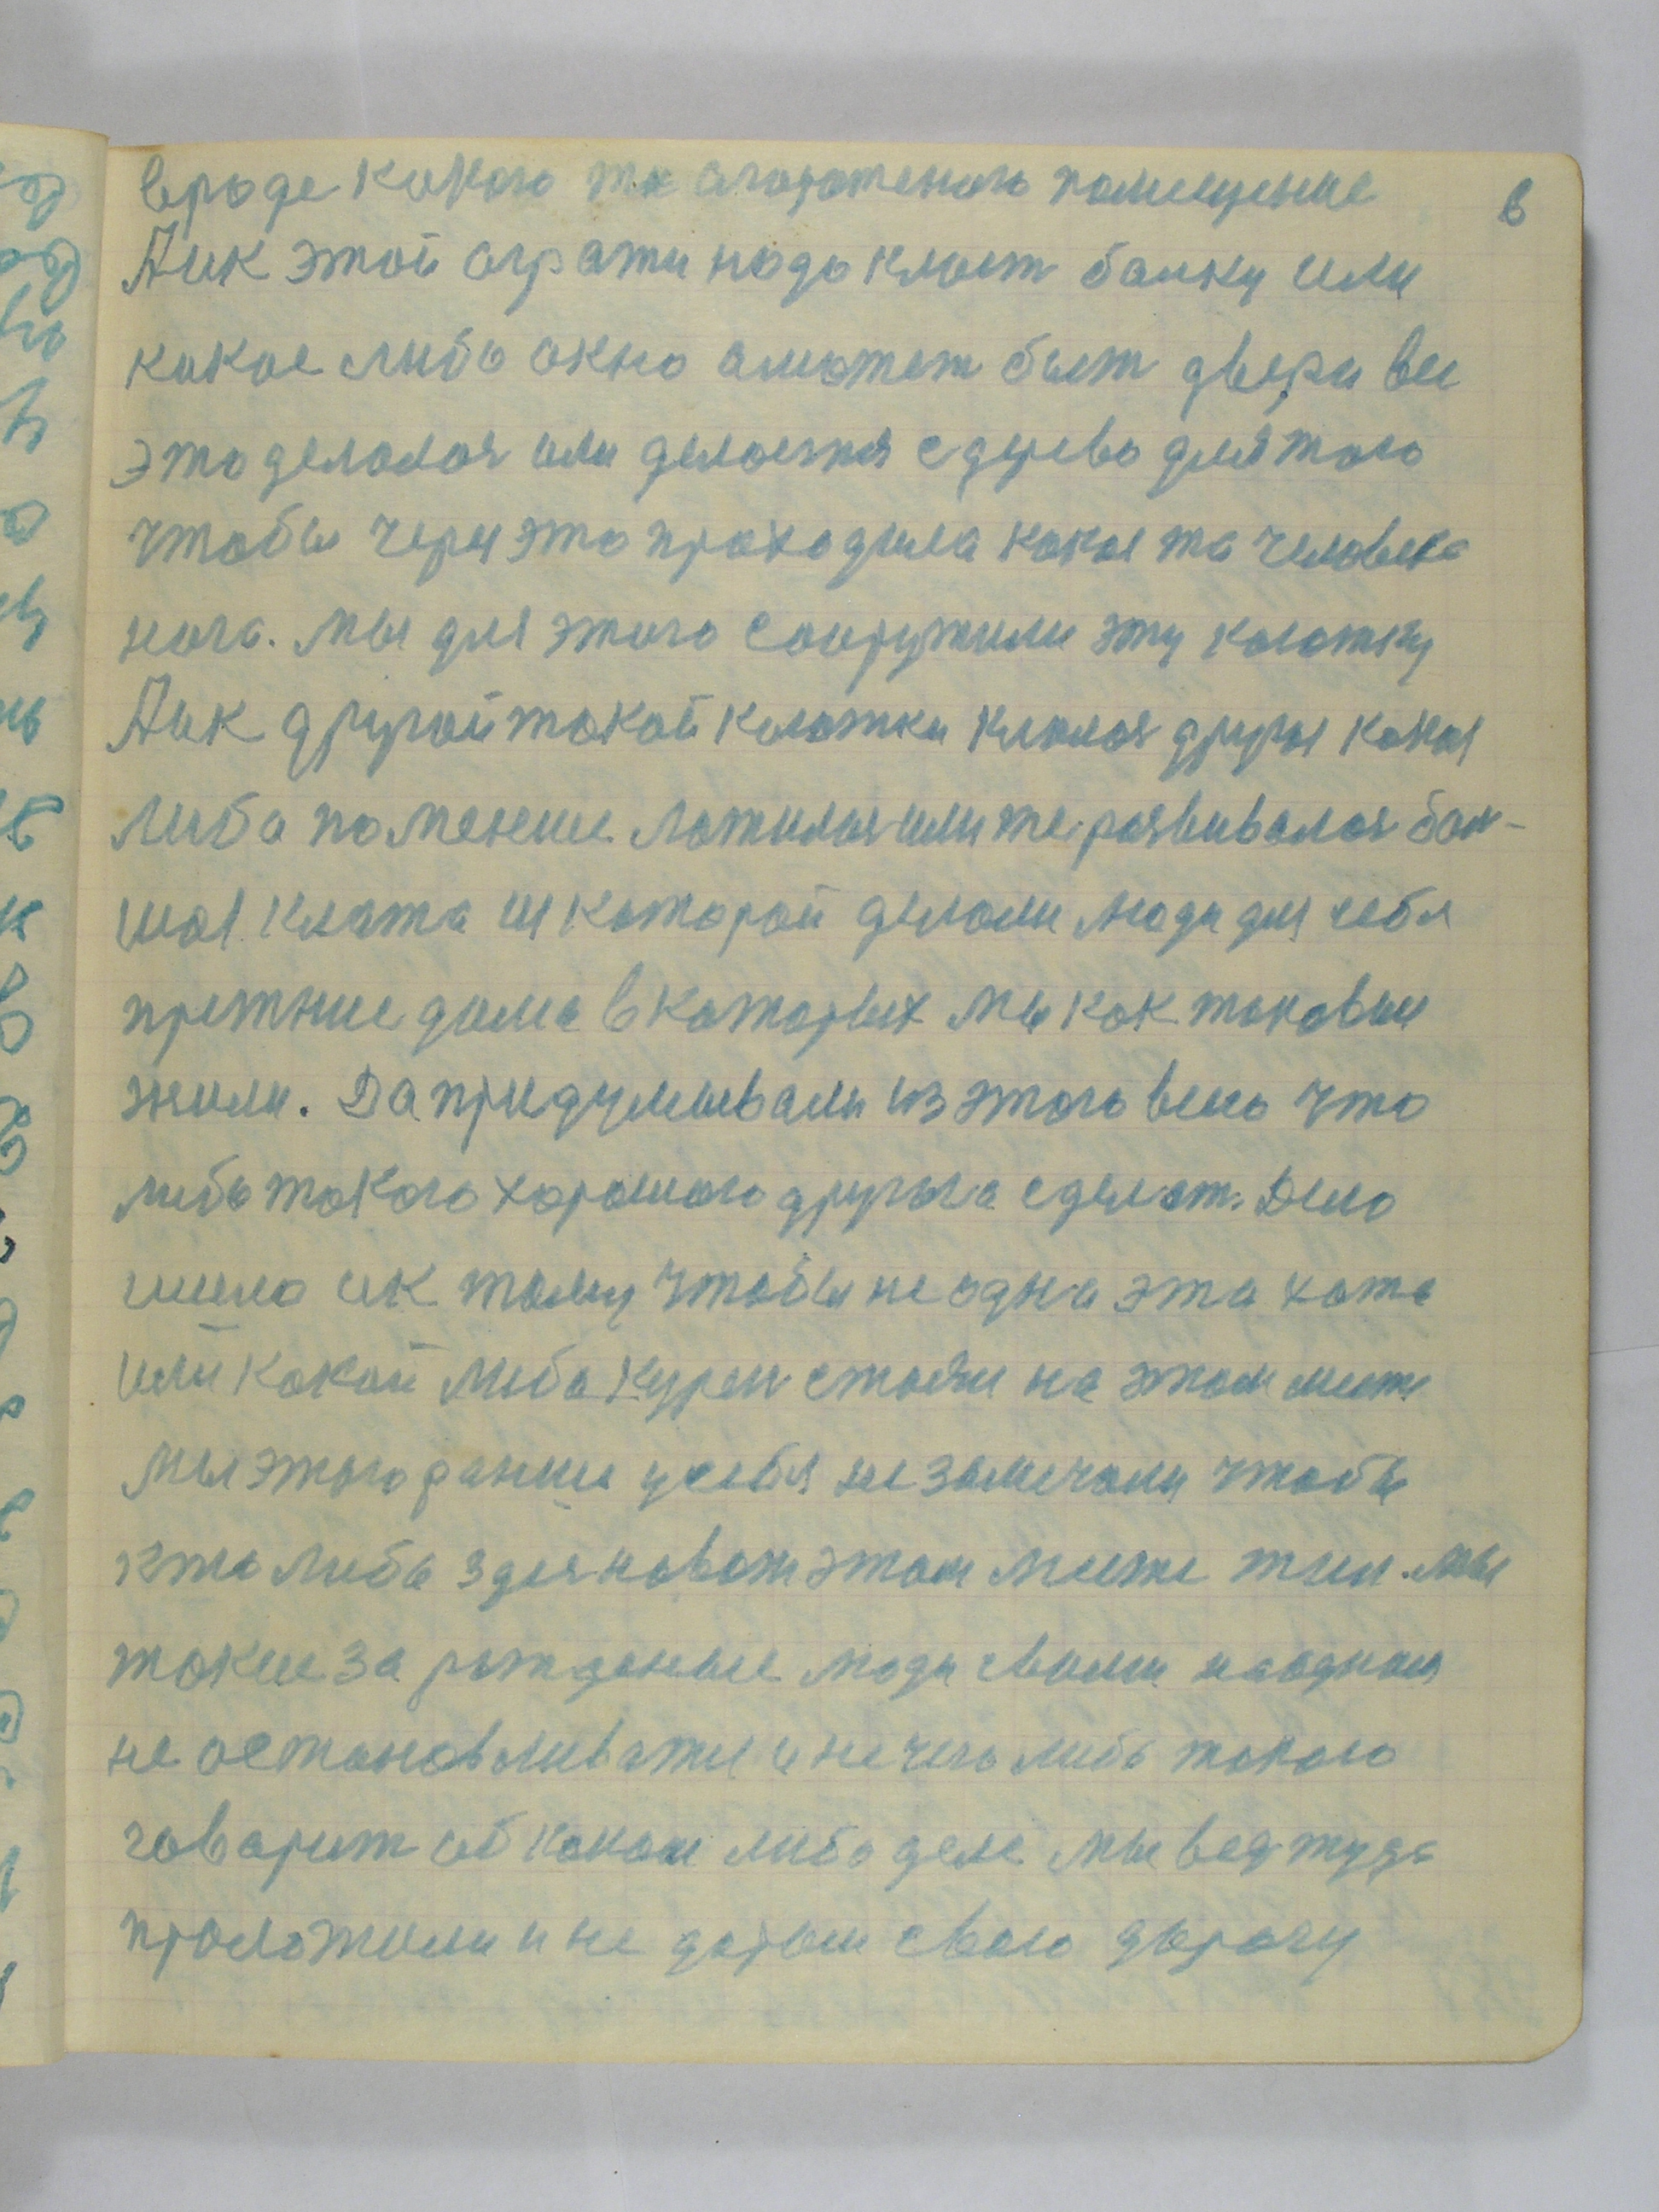 6
вроде какого то агороженого помещение
Аик этой аграти надо класт балку или
какое либо акно аможет быт двери все
это делалося или делоется с дерево для того
чтобы через это проходила какая та человека
нога. мы для этого сооружили эту кагатку
Аик другой такой клатки клалося другая какая
либа помежние лажилося или же развивалося бол-
шая клата из каторой делали люди для себя
прежние дама в каторых мы как таковыи
жили. Да придумывали из этого всего что
либо такого хорошаго другога сделат. Дело
шило ик таму чтобы не одна эта хата
или какой либа курен стояли на этом месте
мы этого ранши у себя не замечали чтобы
кто либа здеся на вот этом месте жил. мы
такие за рождение люди своими наодном
не остановливатся и не чего либо такого
говарит об каком либо деле мы вед туда
проложили и не даром свою дорогу